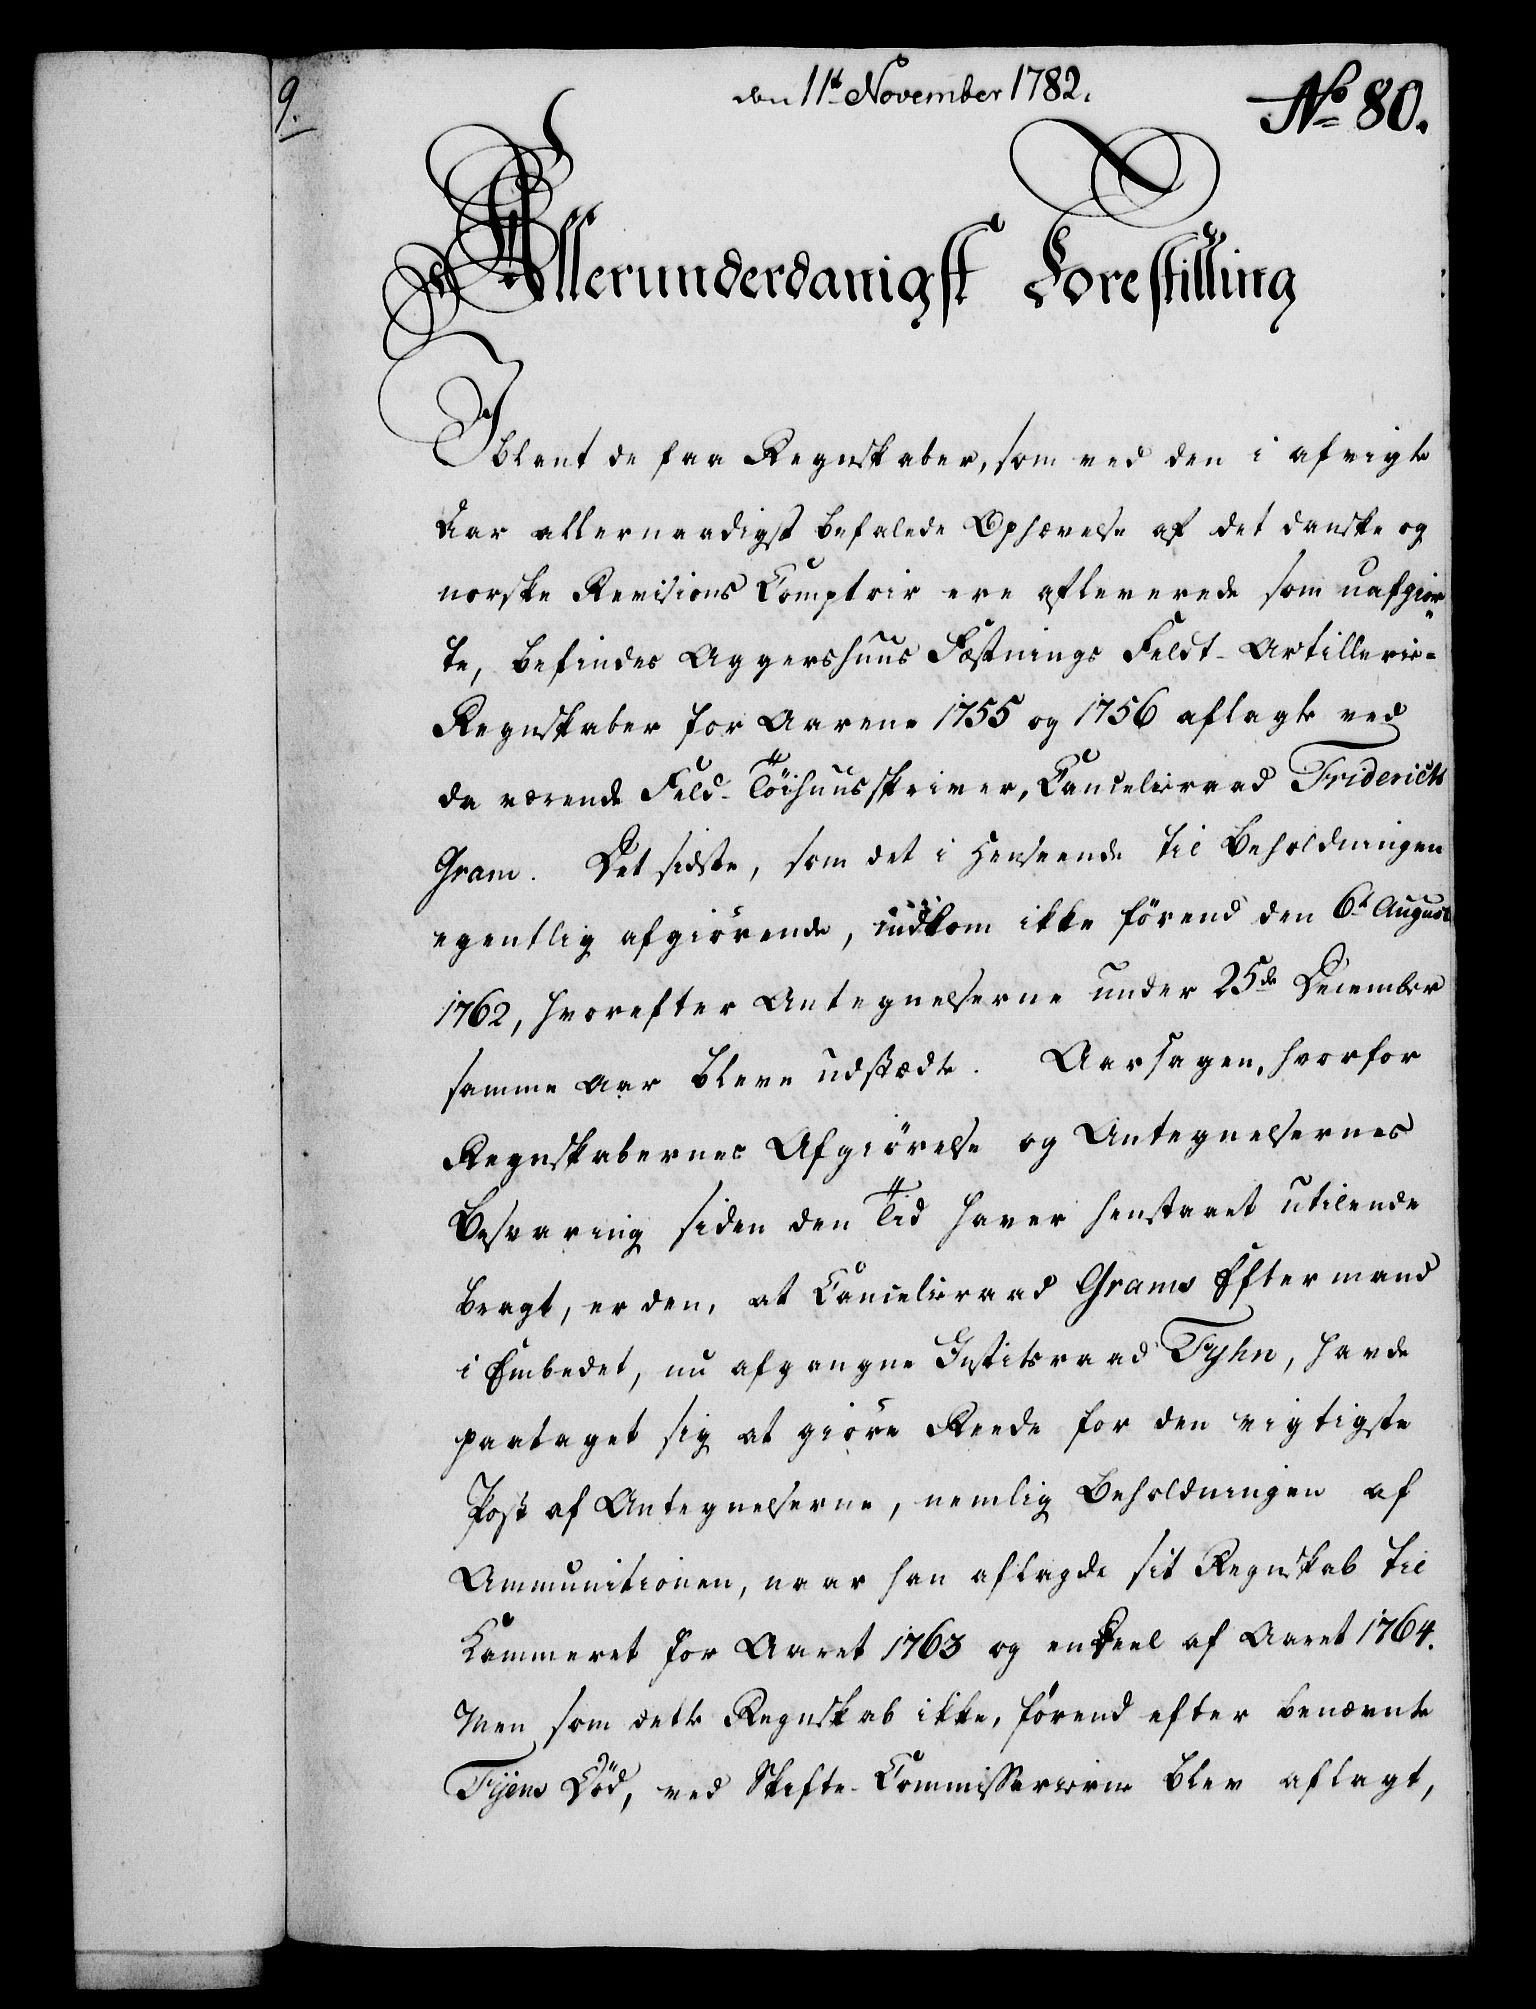 9.
den 11t November 1782.
No 80.
Allerunderdanigst Forestilling
Iblant de faa Regnskaber, som ved den i afvigte
Aar allernaadigst befalede Ophævelse af det danske og
norske Revisions Comptoir ere afleverede som uafgior„
te, befindes Aggershuus Fæstnings Feldt-Artillerie-
Regnskaber for Aarene 1755 og 1756 aflagte ved
da værende Feld-Töihuusskriver, Cancelieraad Friderich
Gram. Det sidste, som det i Henseende til Beholdningen
egentlig afgiörende, indkom ikke förend den 6t August
1762, hvorefter Antegnelserne under 25de December
samme Aar bleve udstædte. Aarsagen, hvorfor
Regnskabernes Afgiörelse og Antegnelsernes
Besvaring siden den Tid haver henstaaet utilende
bragt, er den, at Cancelieraad Grams Eftermand
i Embedet, nu afgangne Justitsraad Tyhn, havde
paataget sig at giöre Reede for den vigtigste
Post af Antegnelserne, nemlig Beholdningen af
Ammunitionen, naar han aflagde sit Regnskab til
Kammeret for Aaret 1763 og en Deel af Aaret 1764.
Men som dette Regnskab ikke, förend efter benævnte
Tyens Död, ved Skifte-Commissarierne blev aflagt,